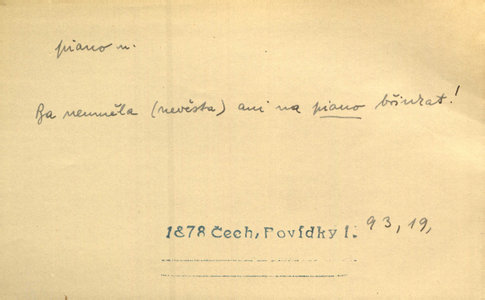 piano n.
Ba neuměla (nevěsta) ani na piano břinkat!
1878 Čech, Povídky I. 93, 19,